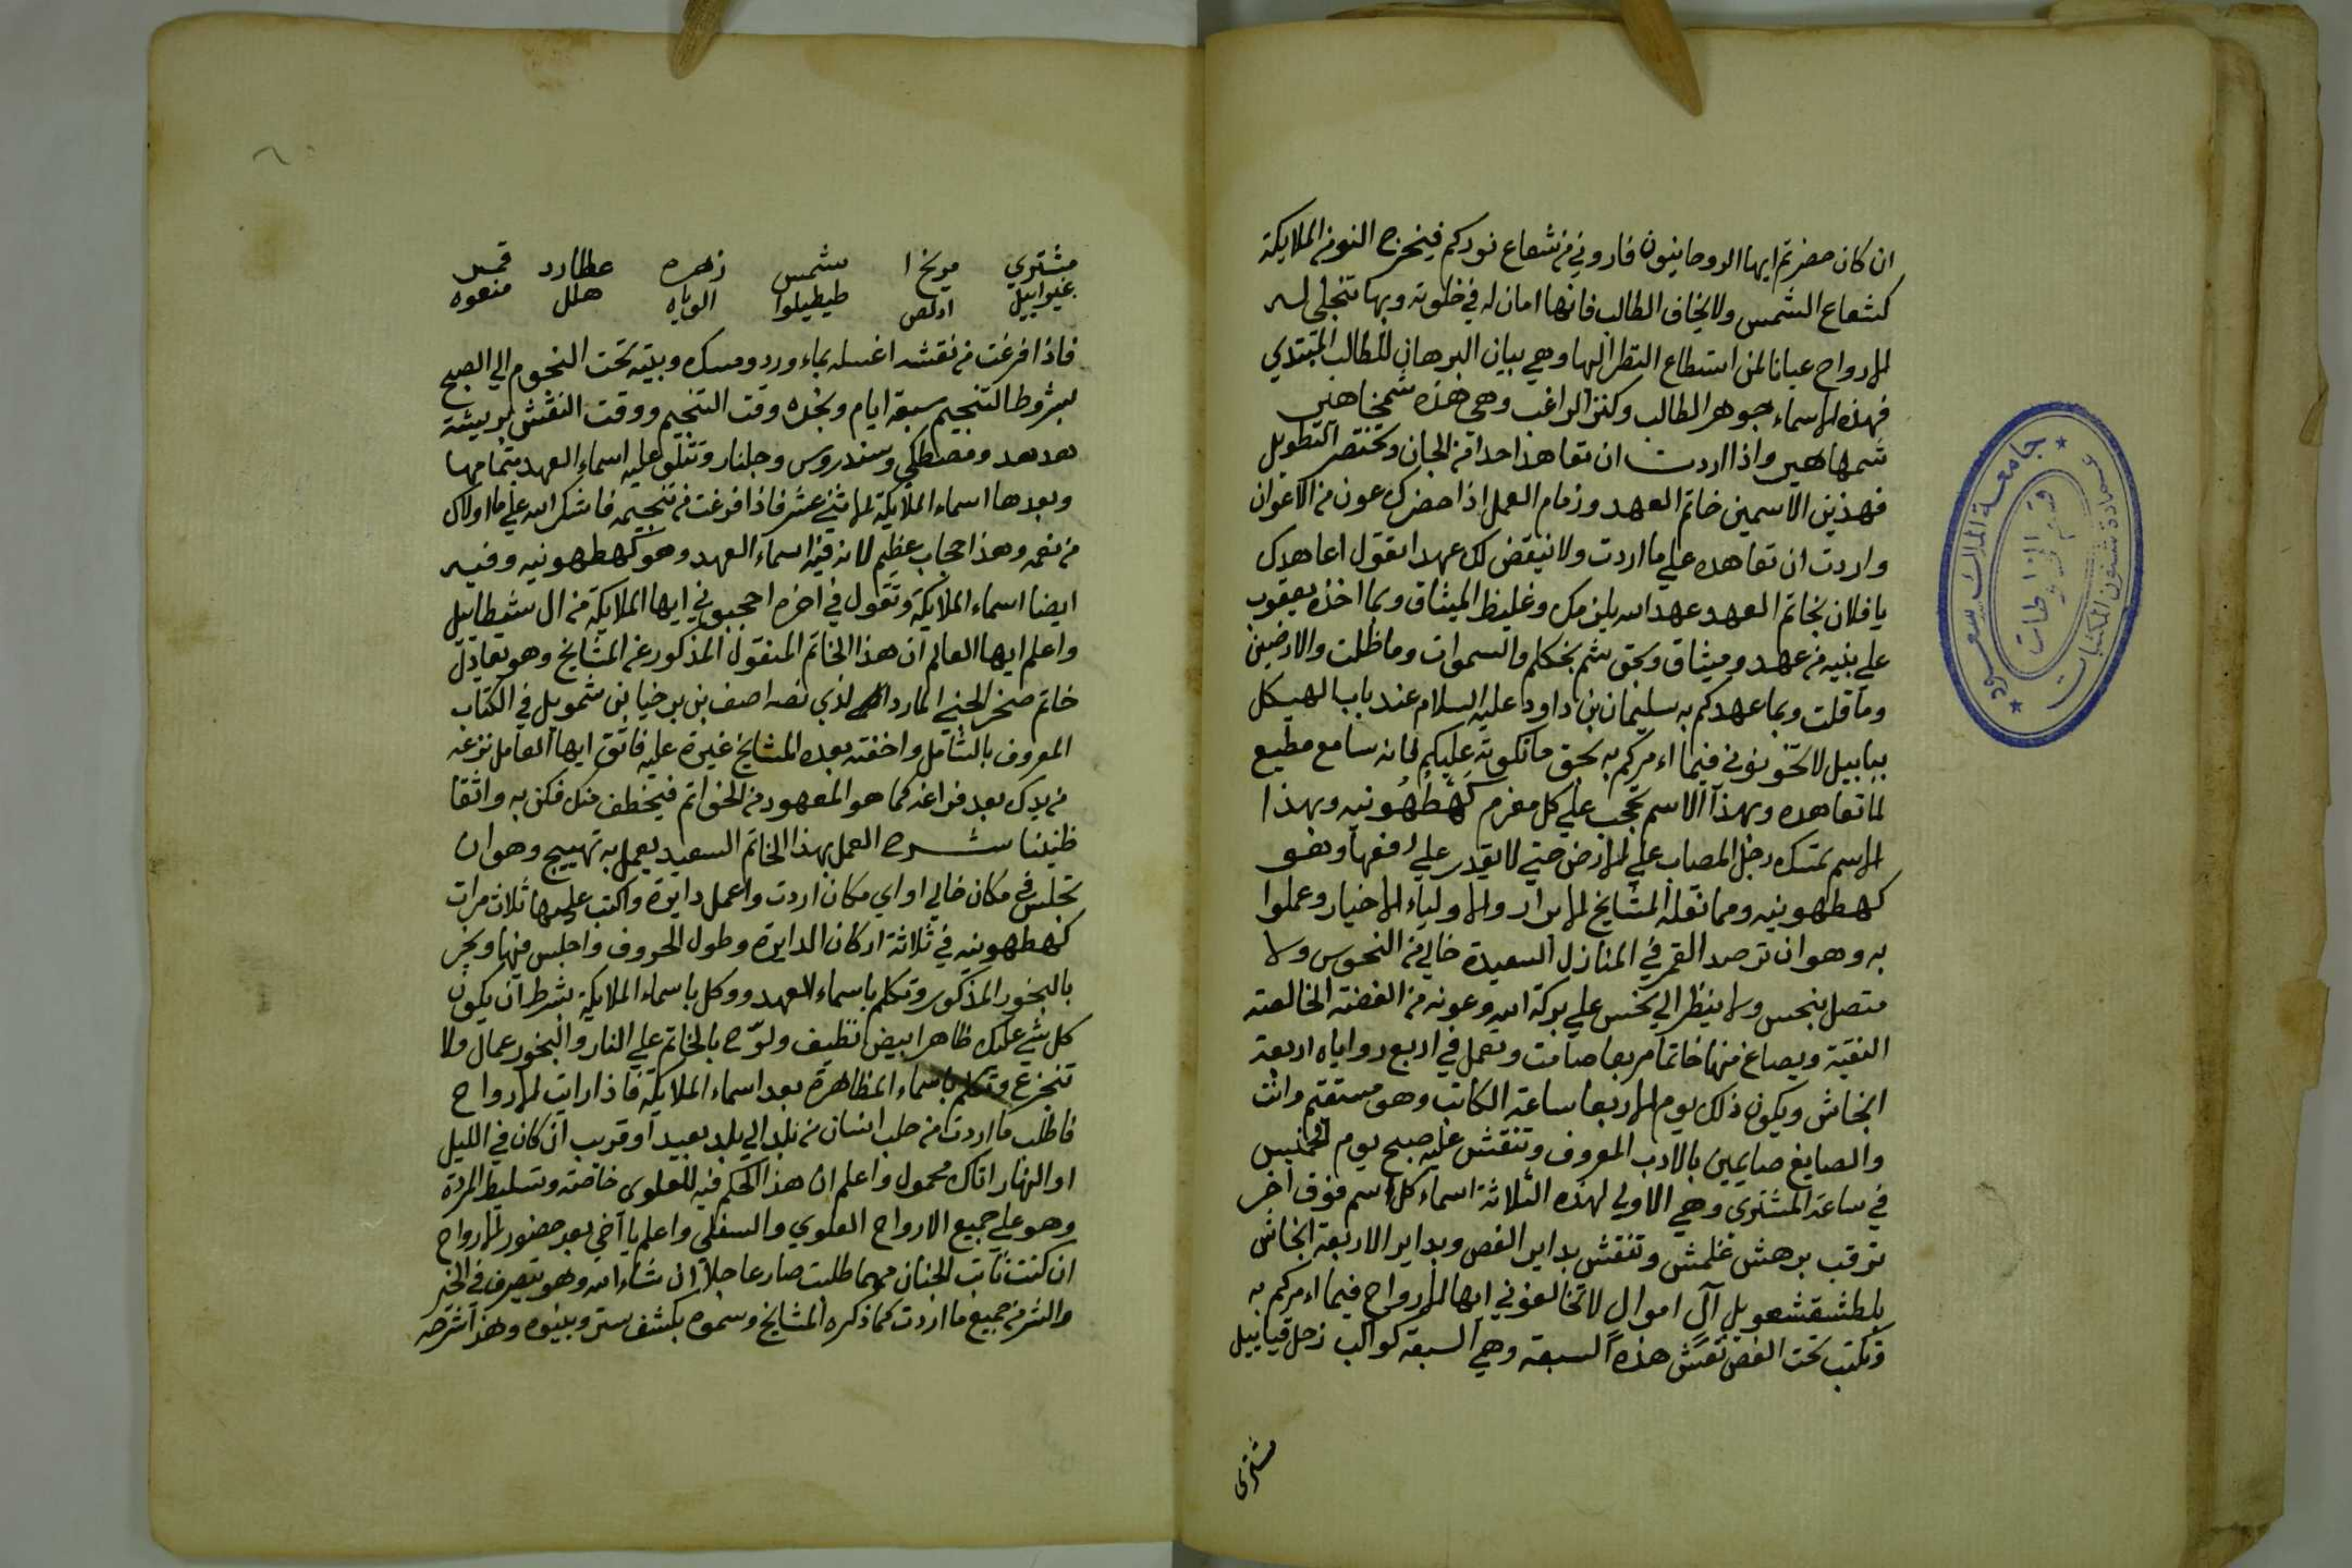 ان كان حضرتم ايها الروحانيون فاروني من شعاع نوركم فينحزه النور الملايكة
كشعاع الشمس ولا يخاف الطالب فانها امان له في خلوته وبها تتجلى له
الارواح عيانا لمن استطاع النظر اليها وهي بيان البرهان للطالب المبتدي
فهذه الاسماء جوهر الطالب وكنز الراغب وهي هذه شمخاهير
شمهاهير واذا اردت ان تعاهد احدا من الجان وتختصر التطويل
فهذين الاسمين خاتم العهد وزمام العمل اذا حضرك عون من الاعوان
واردت ان تعاهده على ما اردت ولا ينقض لك عهدا تقول اعاهدك
يا فلان بخاتم العهد عهد الله يلزمك وغليظ الميثاق وبما اخذه يعقوب
علي بنيه من عهد وميثاق وبحق والسموات وما ظلت والارضين
وما قلت وبما عهدكم به سليمان بن داود عليه السلام عند باب الهيكل
ببابيل لا تخونوني فيما اءمركم به بحق ما تلوته عليكم فانه سامع مطيع
لما تعاهده وبهذا الاسم تجب علي كل مغرم كهطهونيه وبهذا
الاسم تمسك رجل المصاب علي الارض حتي لا يقدر علي رفعها وهو
كهطهونيه ومما نقله المشايخ الابرار والاولياء الاخيار وعملوا
به وهو ان ترصد القمر في المنازل السعيدة خالي من النحوس ولا
متصل بنحس ولا ينظر الي نحس علي بركة الله وعونه من الفضة الخالصة
النقية ويصاغ منها خاتما مربعا صامت ويعمل في اربع رواياه اربعة
الخاش ويكون ذلك يوم الاربعا ساعة الكاتب وهو مستقيم وانت
والصايغ صايمين بالادب المعروف وتنقش عليه صبح يوم الخميس
في ساعة المشتري وهي الاولي لهذه الثلاثة اسماء كل اسم فوق اخر
ترقب برهش غلمش وتنقش بداير الفص وبداير الاربعة الخاش
بلطشقشعويل آل اموال لا تخالفوني ايها الارواح فيما اءمركم به
وتكتب تحت الفص نقش هذه السبعة وهي السبعة كواكب زحل قيابيل
مشتري
مشتري مريخ ا شمس زهره عطارد قمر
عنيوابيل ادلص طيطيلوا الوياه هلل منعوه
فاذا فرغت من نقشه اغسله بماء ورد ومسك وبيته تحت النجوم الي الصبح
بشروط التنجيم سبعة ايام وبخره وقت التنجيم ووقت النقش بريشة
هدهد ومصطكي وسندروس وجلنار وتتلو عليه اسماء العهد بتمامها
وبعدها اسماء الملايكة الاثني عشر فاذا فرغت من تنجيمه فاشكر الله علي ما اولاك
من نعمه وهذا حجاب عظيم لانه فيه اسماء العهد وهو كهطهونيه وفيه
ايضا اسماء الملايكة وتقول في اخره احجبوني ايها الملايكة من ال شيطاييل
واعلم ايها العالم ان هذا الخاتم المنقول المذكور عن المشايخ وهو يعادل
خاتم صخر الجني المارد الذي نصه اصف بن برخيا بن شمويل في الكتاب
المعروف بالشامل واخفته بعده المشايخ غيرة عليه فاتق ايها العامل نزعه
من يدك بعد فراغه كما هو المعهود من الخواتم فيخطف منك فكن به واثقا
ظنينا شرح العمل بهذا الخاتم السعيد يعمل به تهييج وهو ان
تجلس في مكان خالي او اي مكان اردت واعمل دايرة واكتب عليها ثلاث مرات
كهطهونيه في ثلاثة اركان الدايرة وطول الحروف واجلس فيها وبخر
بالبخور المذكور وتكلم باسماء العهد ووكل باسماء الملايكة بشرط ان يكون
كل شي عليك طاهرا بيض نظيف ولوّح بالخاتم علي النار والبخور عمال ولا
تنجزع وتكلم باسماء المظاهرة بعد اسماء الملايكة فاذا رايت الارواح
فاطلب ما اردت من جلب انسان من بلد الي بلد بعيد او قريب ان كان في الليل
او النهار اتاك محمول واعلم ان هذا الحكم فيه للعلوى خاصته وتسليط المردة
وهو علي جميع الارواح العلوي والسفلي واعلم يا اخي بعد حضور الارواح
ان كنت ثابت الجنان مهما طلبت صار عاجلا ان شاء الله وهو يتصرف في الخير
والشر من جميع ما اردت كما ذكره المشايخ وسموه بكشف ستر وبينوه وهذا شرحه
جامعة الملك سعود
عمادة شئون المكتبات
قسم المخطوطات